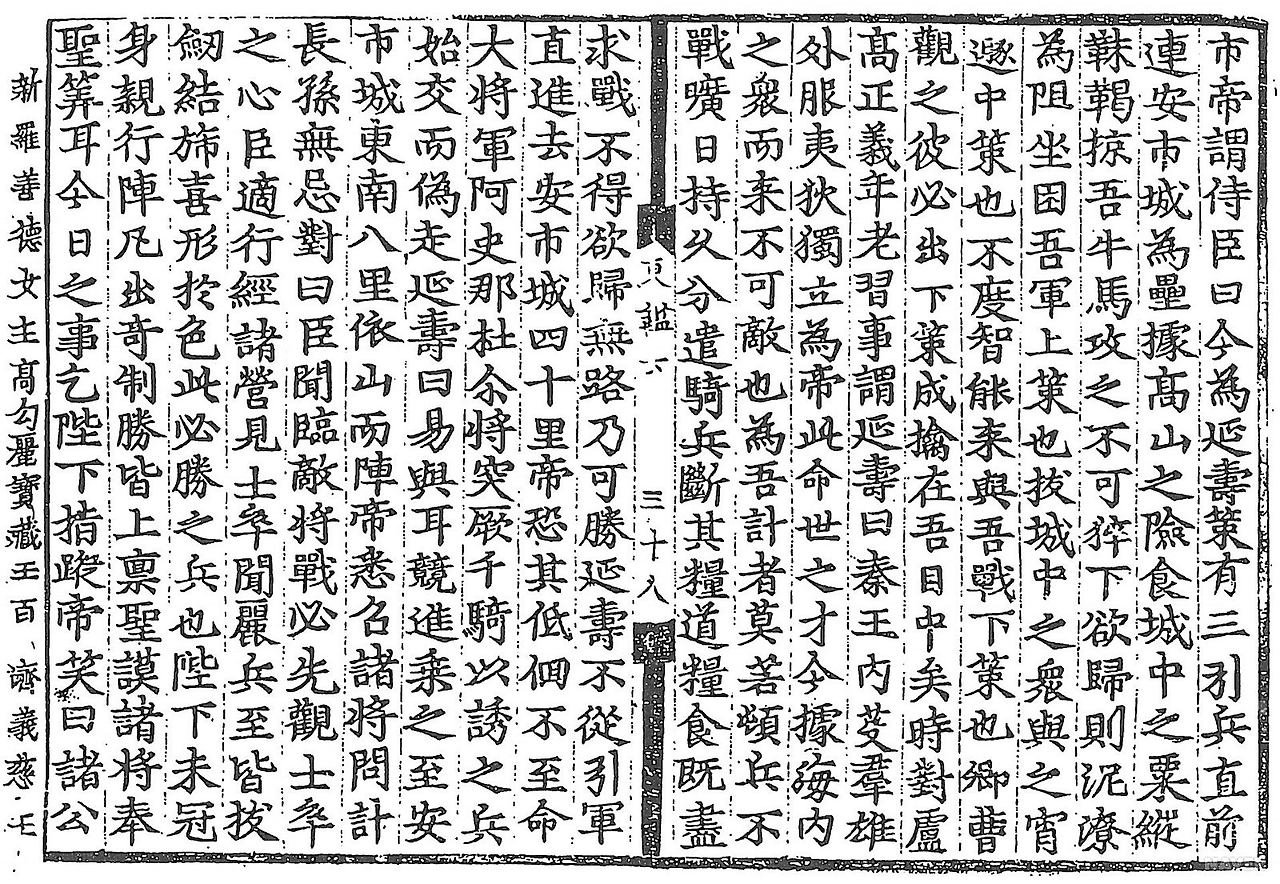 市帝謂侍臣曰今為延壽策有三引兵直前
連安市城為壘據髙山之險食城中之粟縱
靺鞨掠吾牛馬攻之不可猝下欲歸則泥潦
為阻坐困吾軍上策也拔城中之衆與之宵
遯中策也不度智能来與吾戰下策也卿曹
觀之彼必出下策成擒在吾目中矣時對盧
髙正義年老習事謂延壽曰秦王内芟羣雄
外服夷狄獨立為帝此命世之才今據海内
之衆而来不可敵也為吾計者莫若頓兵不
戰曠日持久分遣騎兵斷其糧道糧食既盡
鑑 三十八
求戰不得欲歸無路乃可勝延壽不從引軍
直進去安市城四十里帝恐其低佪不至命
大將軍阿史那杜尒將突厥千騎以誘之兵
始交而偽走延壽曰易與耳競進乗之至安
市城東南八里依山而陣帝悉召諸將問計
長孫無忌對曰臣聞臨敵將戰必先觀士卒
之心臣適行經諸營見士卒聞麗兵至皆拔
劒結斾喜形於色此必勝之兵也陛下未冠
身親行陣凡出奇制勝皆上禀聖謨諸將奉
聖筭耳今日之事乞陛下指蹤帝笑曰諸公
新羅善德女主髙勾麗寶藏王百濟義慈王